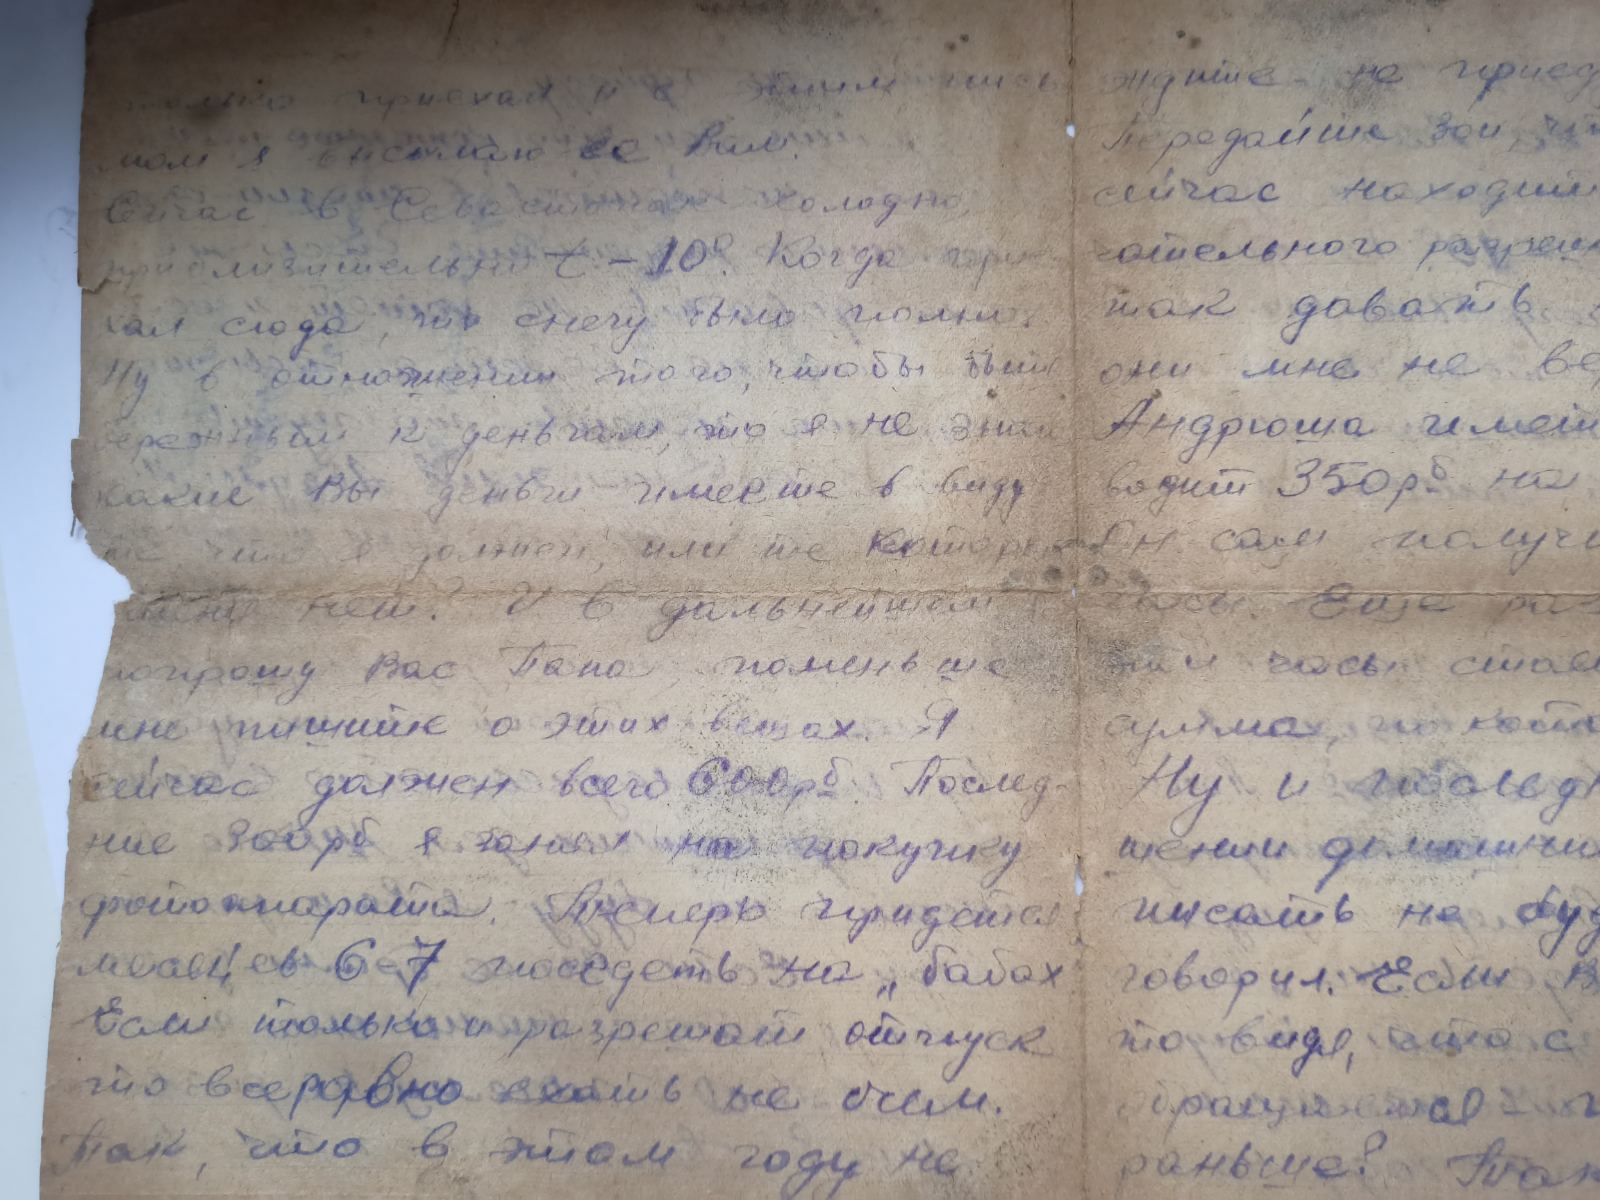 только приехал и с этим пись
мом я высылаю ее Вам.
Сейчас в Севастополе холодно,
приблизительно t -10°. Когда прие
хал сюда, то снегу было полно.
Ну в отношении того, чтобы быть
бережным к деньгам, то я не знаю
какие Вы деньги имеете в виду
те что я должен, или те которых
нет? И в дальнейшем
попрошу Вас Папа, поменьше
мне пишите о этих вещах. Я
сейчас должен всего 600 рб. Послед-
ние 300 рб я занял на покупку
фотоаппарата. Теперь придется
месяцев 6-7 посидеть на „бобах
Если только и разрешат отпуск
то всеравно ехать не с чем.
Так, что в этом году не
ждите не приед
Передайте Зои, чт
сейчас находит
чательного разреш
так давать
они мне не ве
Андрюша имеет
водит 350 рб на
Он сам получ
часы. Еще раз
эти часы став
сумма, по кото
Ну и послед
шении домашни
писать не буд
говорил. Если В
то видя, что с
обращается
раньше? Так